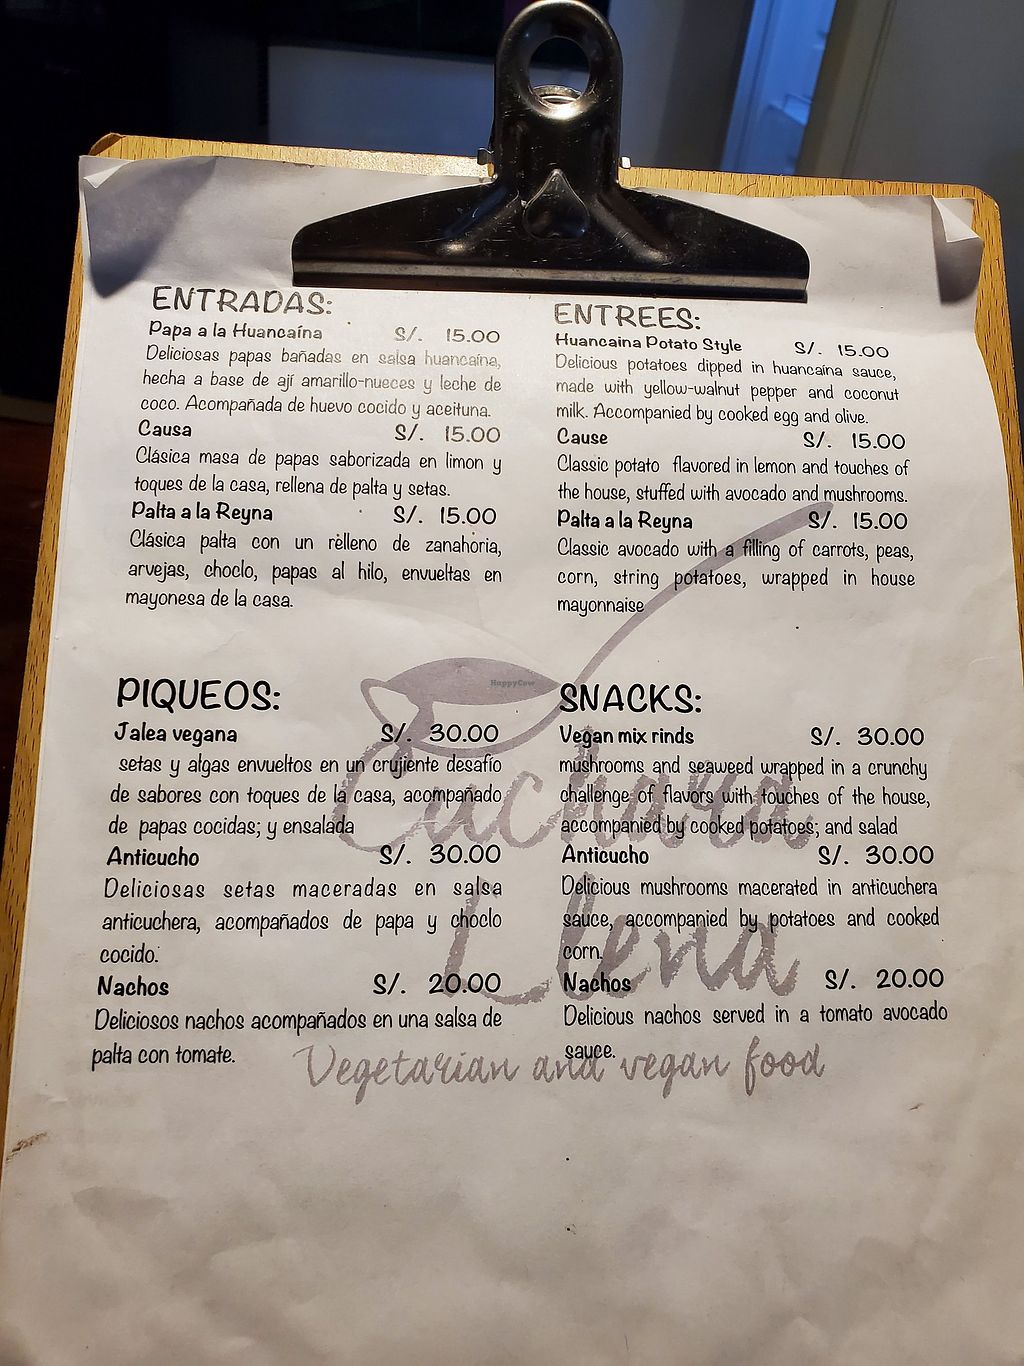 ENTRADAS:
Papa a la Huancaína S/. 15.00
Deliciosas papas bañadas en salsa huancaína,
hecha a base de ají amarillo-nueces y leche de
coco. Acompañada de huevo cocido y aceituna.
Causa S/. 15.00
Clásica masa de papas saborizada en limon y
toques de la casa, rellena de palta y setas.
Palta a la Reyna S/. 15.00
Clásica palta con un relleno de zanahoria,
arvejas, choclo, papas al hilo, envueltas en
mayonesa de la casa.
PIQUEOS:
Jalea vegana S/. 30.00
setas y algas envueltos en un crujiente desafío
de sabores con toques de la casa, acompañado
de papas cocidas; y ensalada
Anticucho S/. 30.00
Deliciosas setas maceradas en salsa
anticuchera, acompañados de papa y choclo
cocido.
Nachos S/. 20.00
Deliciosos nachos acompañados en una salsa de
palta con tomate.
ENTREES:
Huancaina Potato Style S/. 15.00
Delicious potatoes dipped in huancaína sauce,
made with yellow-walnut pepper and coconut
milk. Accompanied by cooked egg and olive.
Cause S/. 15.00
Classic potato flavored in lemon and touches of
the house, stuffed with avocado and mushrooms.
Palta a la Reyna S/. 15.00
Classic avocado with a filling of carrots, peas,
corn, string potatoes, wrapped in house
mayonnaise
SNACKS:
Vegan mix rinds S/. 30.00
mushrooms and seaweed wrapped in a crunchy
challenge of flavors with touches of the house,
accompanied by cooked potatoes; and salad
Anticucho S/. 30.00
Delicious mushrooms macerated in anticuchera
sauce, accompanied by potatoes and cooked
corn.
Nachos S/. 20.00
Delicious nachos served in a tomato avocado
sauce.
HappyCow
Cuchara
Llena
Vegetarian and vegan food